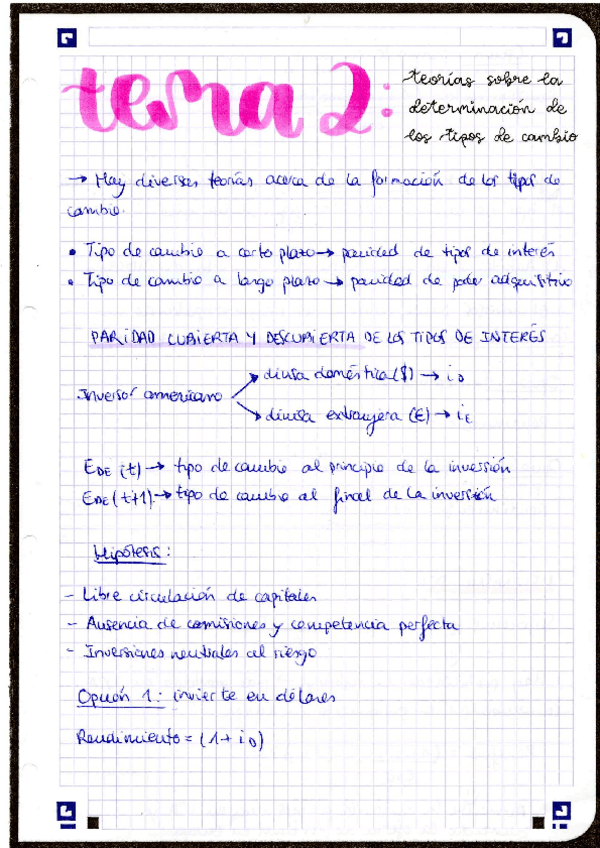 tema 2: teorías sobre la
determinación de
los tipos de cambio
→ Hay diversas teorías acerca de la formación de los tipos de
cambio.
• Tipo de cambio a corto plazo → paridad de tipos de interés
• Tipo de cambio a largo plazo → paridad de poder adquisitivo
PARIDAD CUBIERTA Y DESCUBIERTA DE LOS TIPOS DE INTERÉS
divisa doméstica ($) → iD
Inversor americano
divisa extranjera (€) → iE
EDE (t) → tipo de cambio al principio de la inversión
EDE (t+1) → tipo de cambio al final de la inversión
Hipótesis:
- Libre circulación de capitales
- Ausencia de comisiones y competencia perfecta
- Inversiones neutrales al riesgo
Opción 1: invierte en dólares
Rendimiento = (1 + iD)